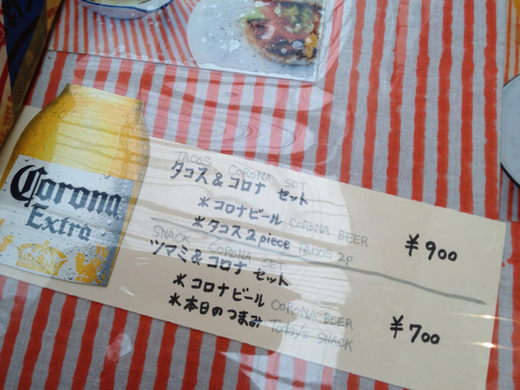 Corona
Extra
TACOS CORONA SET
タコス&コロナ セット
*コロナビール CORONA BEER
*タコス2piece TACOS 2P
¥900
SNACK CORONA SET
ツマミ&コロナ セット
*コロナビール CORONA BEER
*本日のつまみ Today's SNACK
¥700